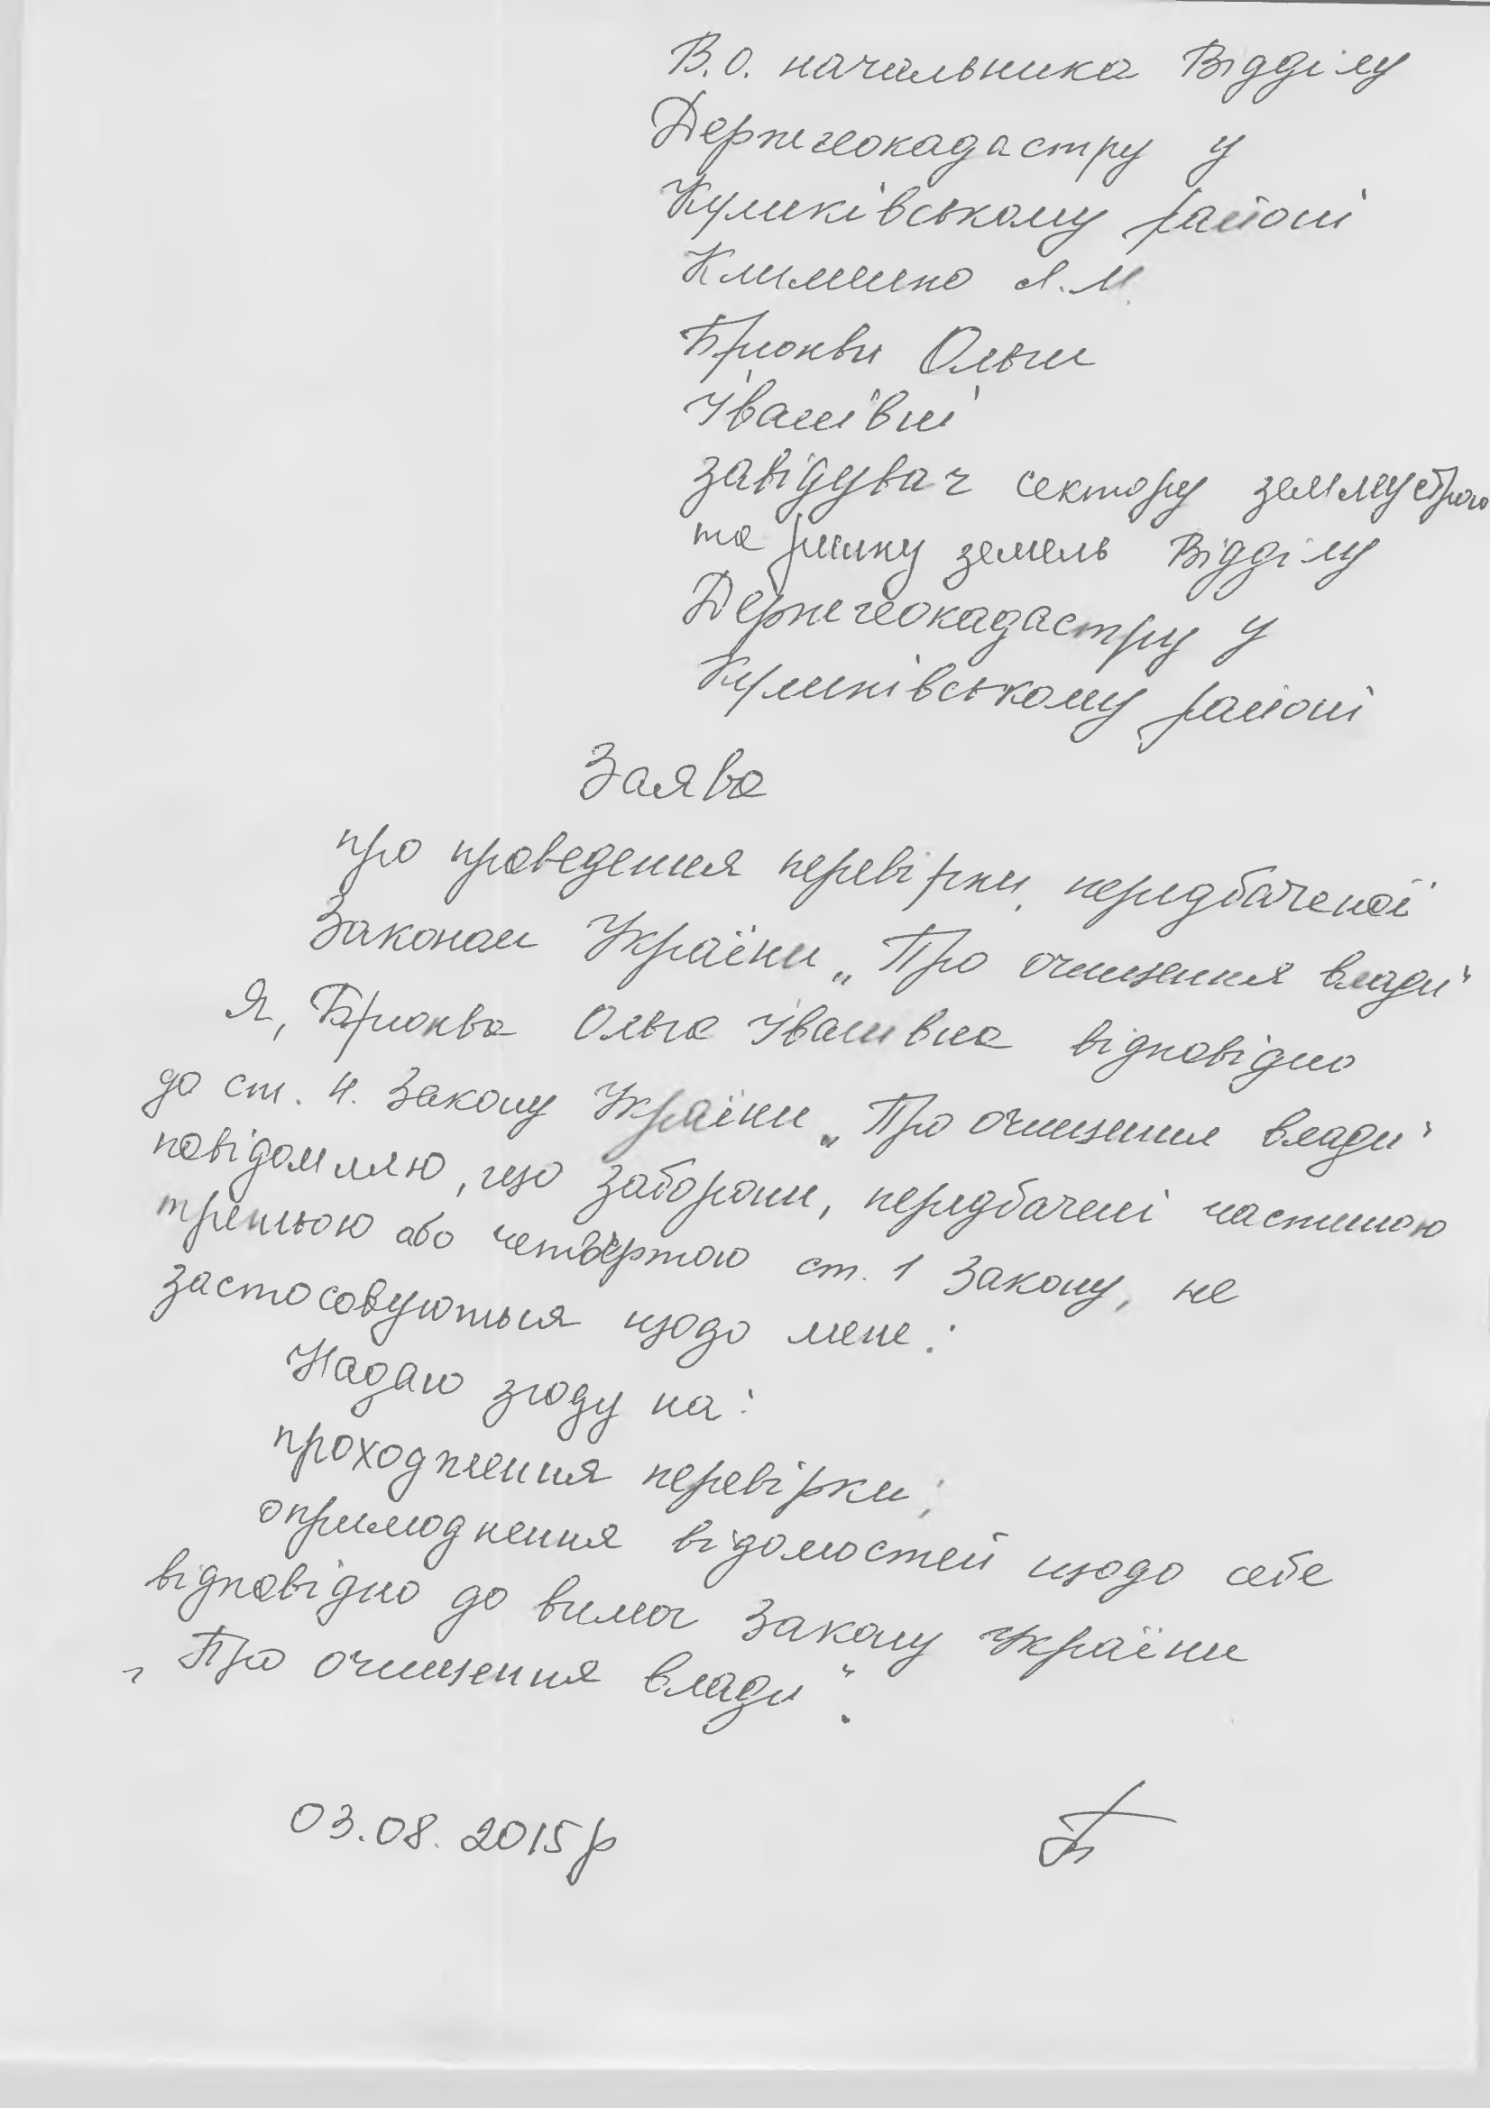 В.о. начальника Відділу
Держгеокадастру у
Куликівському районі
Клименко Л.М.
Брюкви Ольги
Іванівни
завідувач сектору землеустрою
та ринку земель Відділу
Держгеокадастру у
Куликівському районі
Заява
про проведення перевірки, передбаченої
Законом України „Про очищення влади"
Я, Брюква Ольга Іванівна відповідно
до ст. 4. Закону України „Про очищення влади"
повідомляю, що заборони, передбачені частиною
третьою або четвертою ст. 1 Закону, не
застосовуються щодо мене.
Надаю згоду на:
проходження перевірки;
оприлюднення відомостей щодо себе
відповідно до вимог Закону України
„Про очищення влади".
03.08.2015р